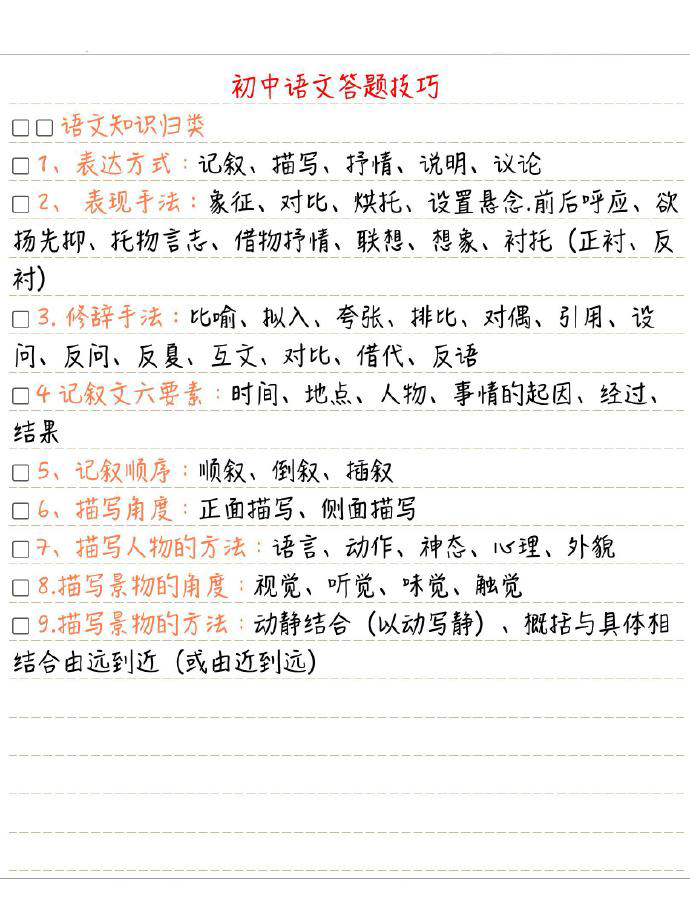 初中语文答题技巧
□□语文知识归类
□1、表达方式：记叙、描写、抒情、说明、议论
□2、 表现手法：象征、对比、烘托、设置悬念.前后呼应、欲
扬先抑、托物言志、借物抒情、联想、想象、衬托（正衬、反
衬）
□3. 修辞手法：比喻、拟入、夸张、排比、对偶、引用、设
问、反问、反复、互文、对比、借代、反语
□4 记叙文六要素：时间、地点、人物、事情的起因、经过、
结果
□5、记叙顺序：顺叙、倒叙、插叙
□6、描写角度：正面描写、侧面描写
□7、描写人物的方法：语言、动作、神态、心理、外貌
□8.描写景物的角度：视觉、听觉、味觉、触觉
□9.描写景物的方法：动静结合（以动写静）、概括与具体相
结合由远到近（或由近到远）